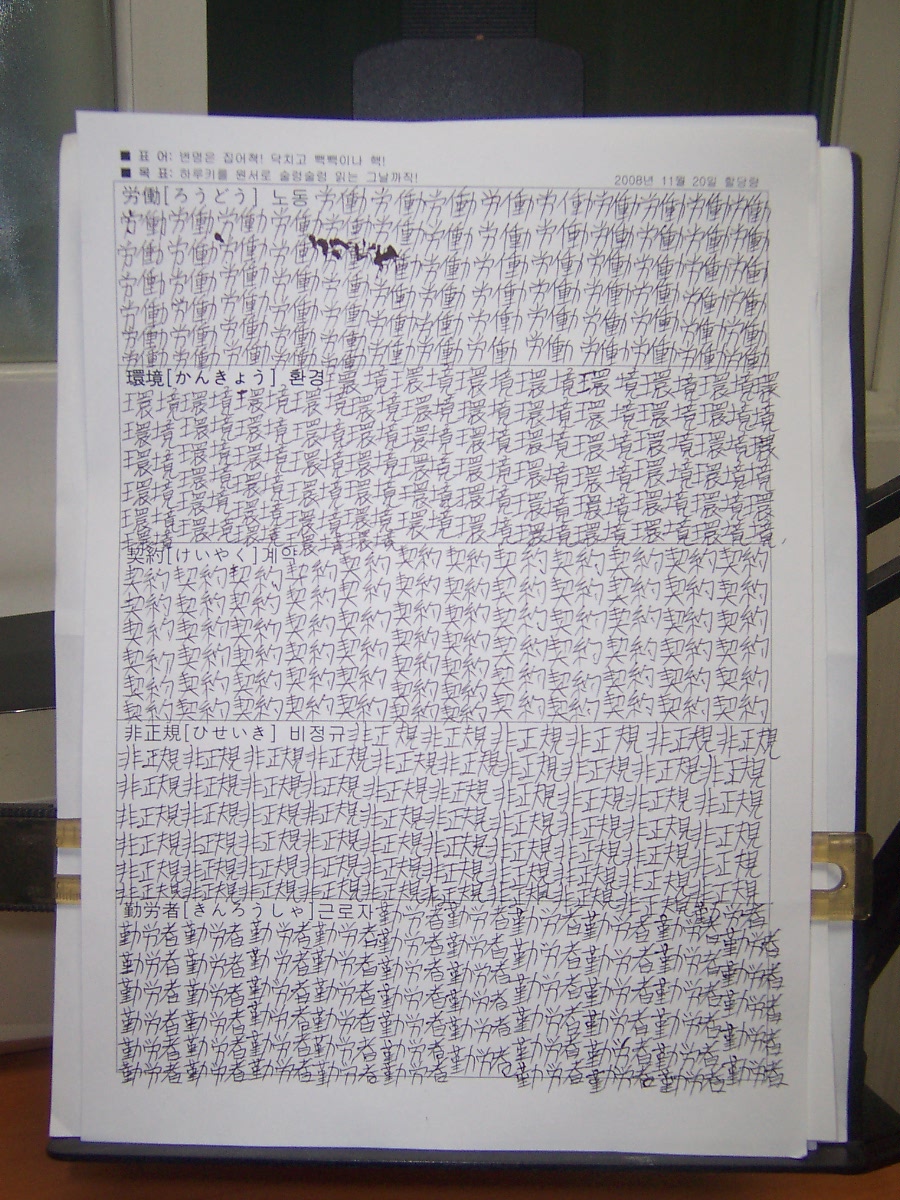 ■ 표 어: 변명은 집어쳐! 닥치고 빽빽이나 핵!
■ 목 표: 하루키를 원서로 술렁술렁 읽는 그날까직!
2008년 11월 20일 할당량
労働[ろうどう] 노동 労働 労働 労働 労働 労働 労働 労働 労働 労働
労働 労働 労働 労働 労働 労働 労働 労働 労働 労働 労働 労働 労働
労働 労働 労働 労働 労働 労働 労働 労働 労働 労働 労働 労働
労働 労働 労働 労働 労働 労働 労働 労働 労働 労働 労働 労働 労働
労働 労働 労働 労働 労働 労働 労働 労働 労働 労働 労働 労働 労働
労働 労働 労働 労働 労働 労働 労働 労働 労働 労働 労働 労働 労働
労働 労働 労働 労働 労働 労働 労働 労働 労働 労働 労働 労働 労働
環境[かんきょう] 환경 環境 環境 環境 環境 環境 環境 環境 環境
環境 環境 環境 環境 環境 環境 環境 環境 環境 環境 環境 環境
環境 環境 環境 環境 環境 環境 環境 環境 環境 環境 環境 環境
環境 環境 環境 環境 環境 環境 環境 環境 環境 環境 環境 環境
環境 環境 環境 環境 環境 環境 環境 環境 環境 環境 環境 環境
環境 環境 環境 環境 環境 環境 環境 環境 環境 環境 環境 環境
環境 環境 環境 環境 環境 環境 環境 環境 環境 環境 環境 環境
契約[けいやく]계약 契約 契約 契約 契約 契約 契約 契約 契約
契約 契約 契約 契約 契約 契約 契約 契約 契約 契約 契約 契約
契約 契約 契約 契約 契約 契約 契約 契約 契約 契約 契約 契約
契約 契約 契約 契約 契約 契約 契約 契約 契約 契約 契約 契約
契約 契約 契約 契約 契約 契約 契約 契約 契約 契約 契約 契約
契約 契約 契約 契約 契約 契約 契約 契約 契約 契約 契約 契約
契約 契約 契約 契約 契約 契約 契約 契約 契約 契約 契約 契約
非正規[ひせいき] 비정규 非正規 非正規 非正規 非正規 非正規 非正規
非正規 非正規 非正規 非正規 非正規 非正規 非正規 非正規 非正規 非正規
非正規 非正規 非正規 非正規 非正規 非正規 非正規 非正規 非正規 非正規
非正規 非正規 非正規 非正規 非正規 非正規 非正規 非正規 非正規 非正規
非正規 非正規 非正規 非正規 非正規 非正規 非正規 非正規 非正規 非正規
非正規 非正規 非正規 非正規 非正規 非正規 非正規 非正規 非正規 非正規
非正規 非正規 非正規 非正規 非正規 非正規 非正規 非正規 非正規 非正規
勤労者[きんろうしゃ]근로자 勤労者 勤労者 勤労者 勤労者 勤労者 勤労者
勤労者 勤労者 勤労者 勤労者 勤労者 勤労者 勤労者 勤労者 勤労者 勤労者
勤労者 勤労者 勤労者 勤労者 勤労者 勤労者 勤労者 勤労者 勤労者 勤労者
勤労者 勤労者 勤労者 勤労者 勤労者 勤労者 勤労者 勤労者 勤労者 勤労者
勤労者 勤労者 勤労者 勤労者 勤労者 勤労者 勤労者 勤労者 勤労者 勤労者
勤労者 勤労者 勤労者 勤労者 勤労者 勤労者 勤労者 勤労者 勤労者 勤労者
勤労者 勤労者 勤労者 勤労者 勤労者 勤労者 勤労者 勤労者 勤労者 勤労者